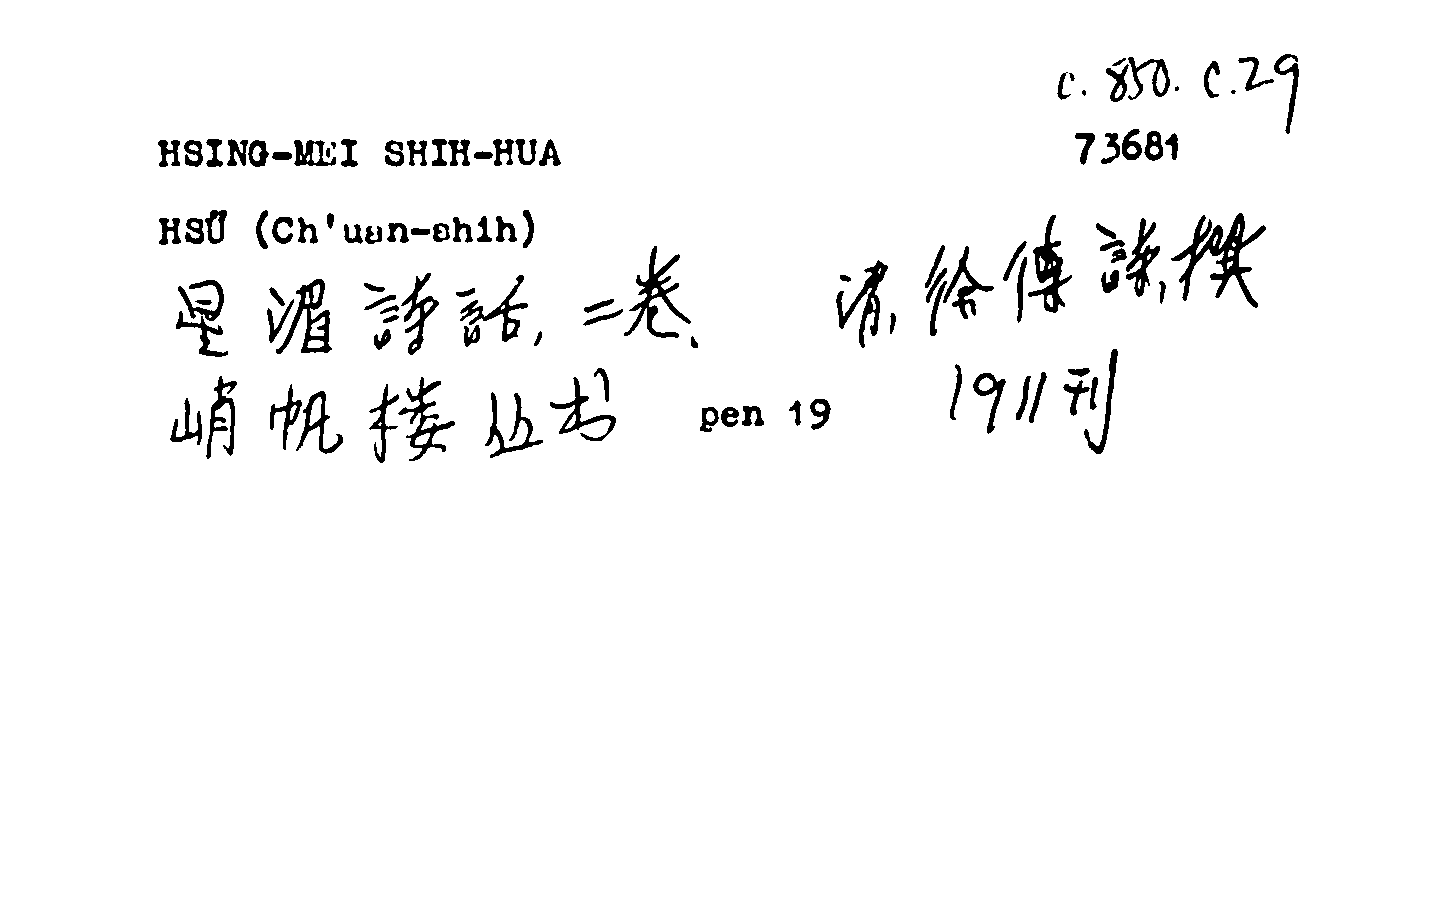 c. 850. c.29
HSING-MEI SHIH-HUA
73681
HSÜ (Ch'uan-shih)
星湄詩話, 二卷. 清, 徐傳詩, 撰
峭帆楼丛书 pen 19 1911刊